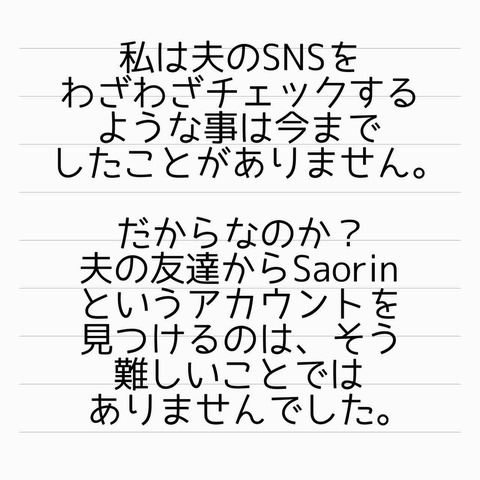 私は夫のSNSを
わざわざチェックする
ような事は今まで
したことがありません。
だからなのか？
夫の友達からSaorin
というアカウントを
見つけるのは、そう
難しいことでは
ありませんでした。